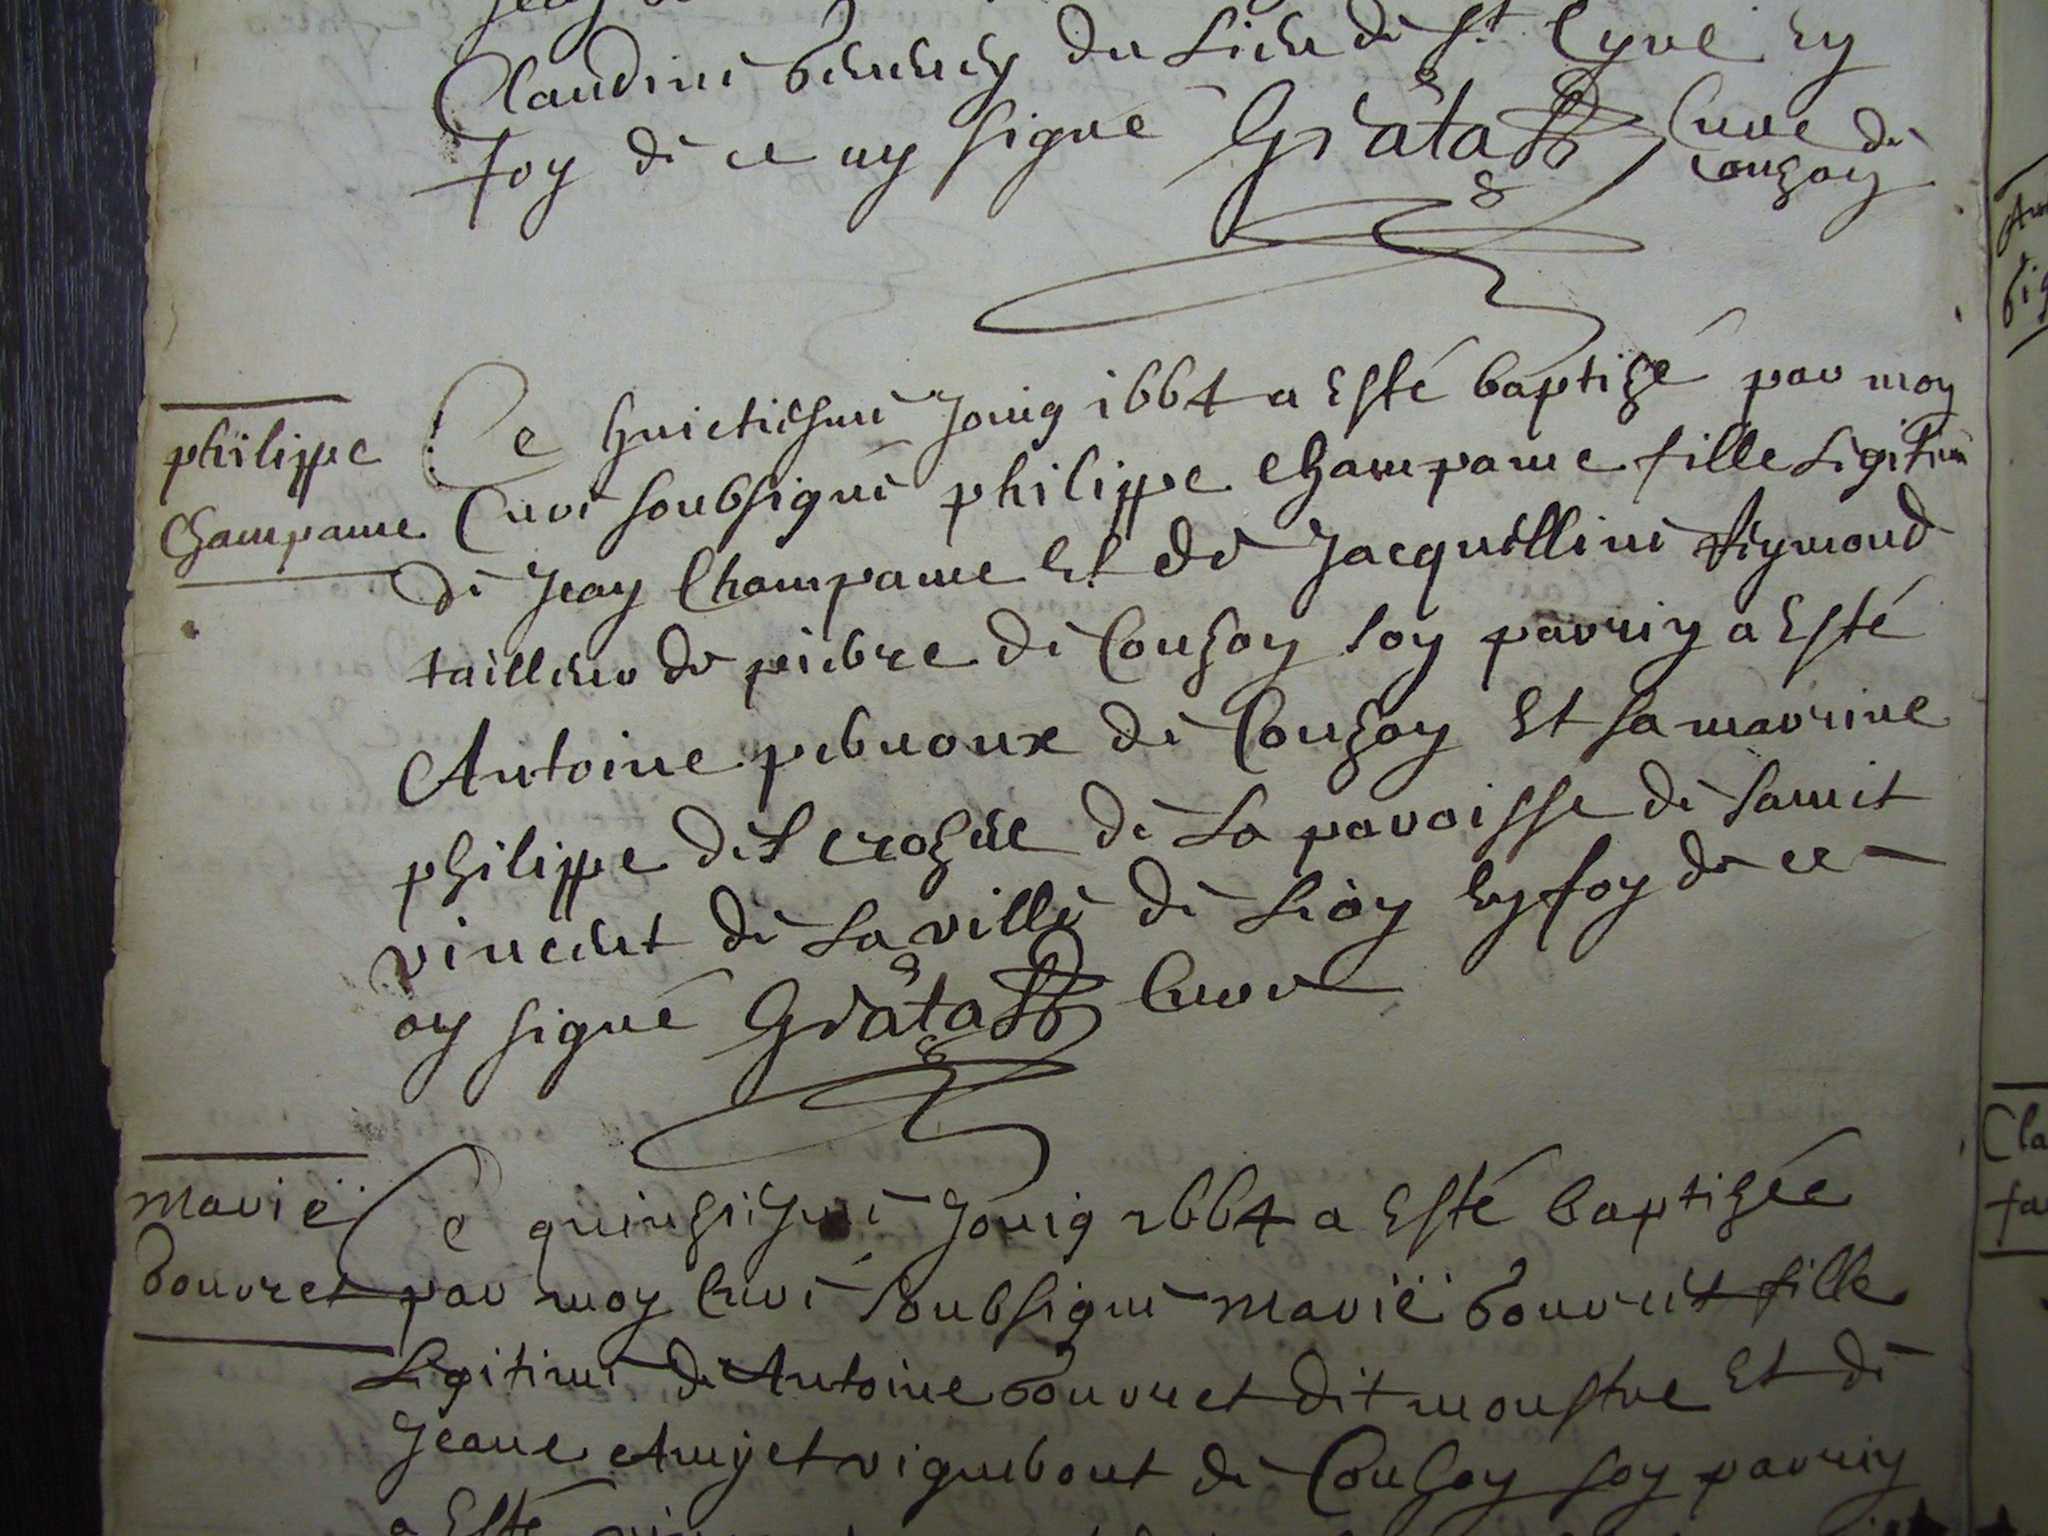 Claudine du lieu de St Cyre en
foy de ce ay signé Grata Curé de Couzon
philippe
Champame
Ce huictiesme Jouin 1664 a Esté baptizé par moy
Curé soubsigné philippe Champame fille Legitime
de Jean Champame Et de Jacquelline Seymond
tailleur de pierre de Couzon son parrin a Esté
Antoine perroux de Couzon Et sa marrine
philippe des crozue de La paroisse de Sainct
vincent de La ville de Lion en foy de ce
ay signé Grata Curé
Marië
bouvret
Ce quinziesme Jouin 1664 a Esté baptizée
par moy Curé soubsigné Marië bouvret fille
Legitime de Antoine bouvret dit monstre Et de
Jeane Amyet vigneront de Couzon son parrin
a Esté
Cla